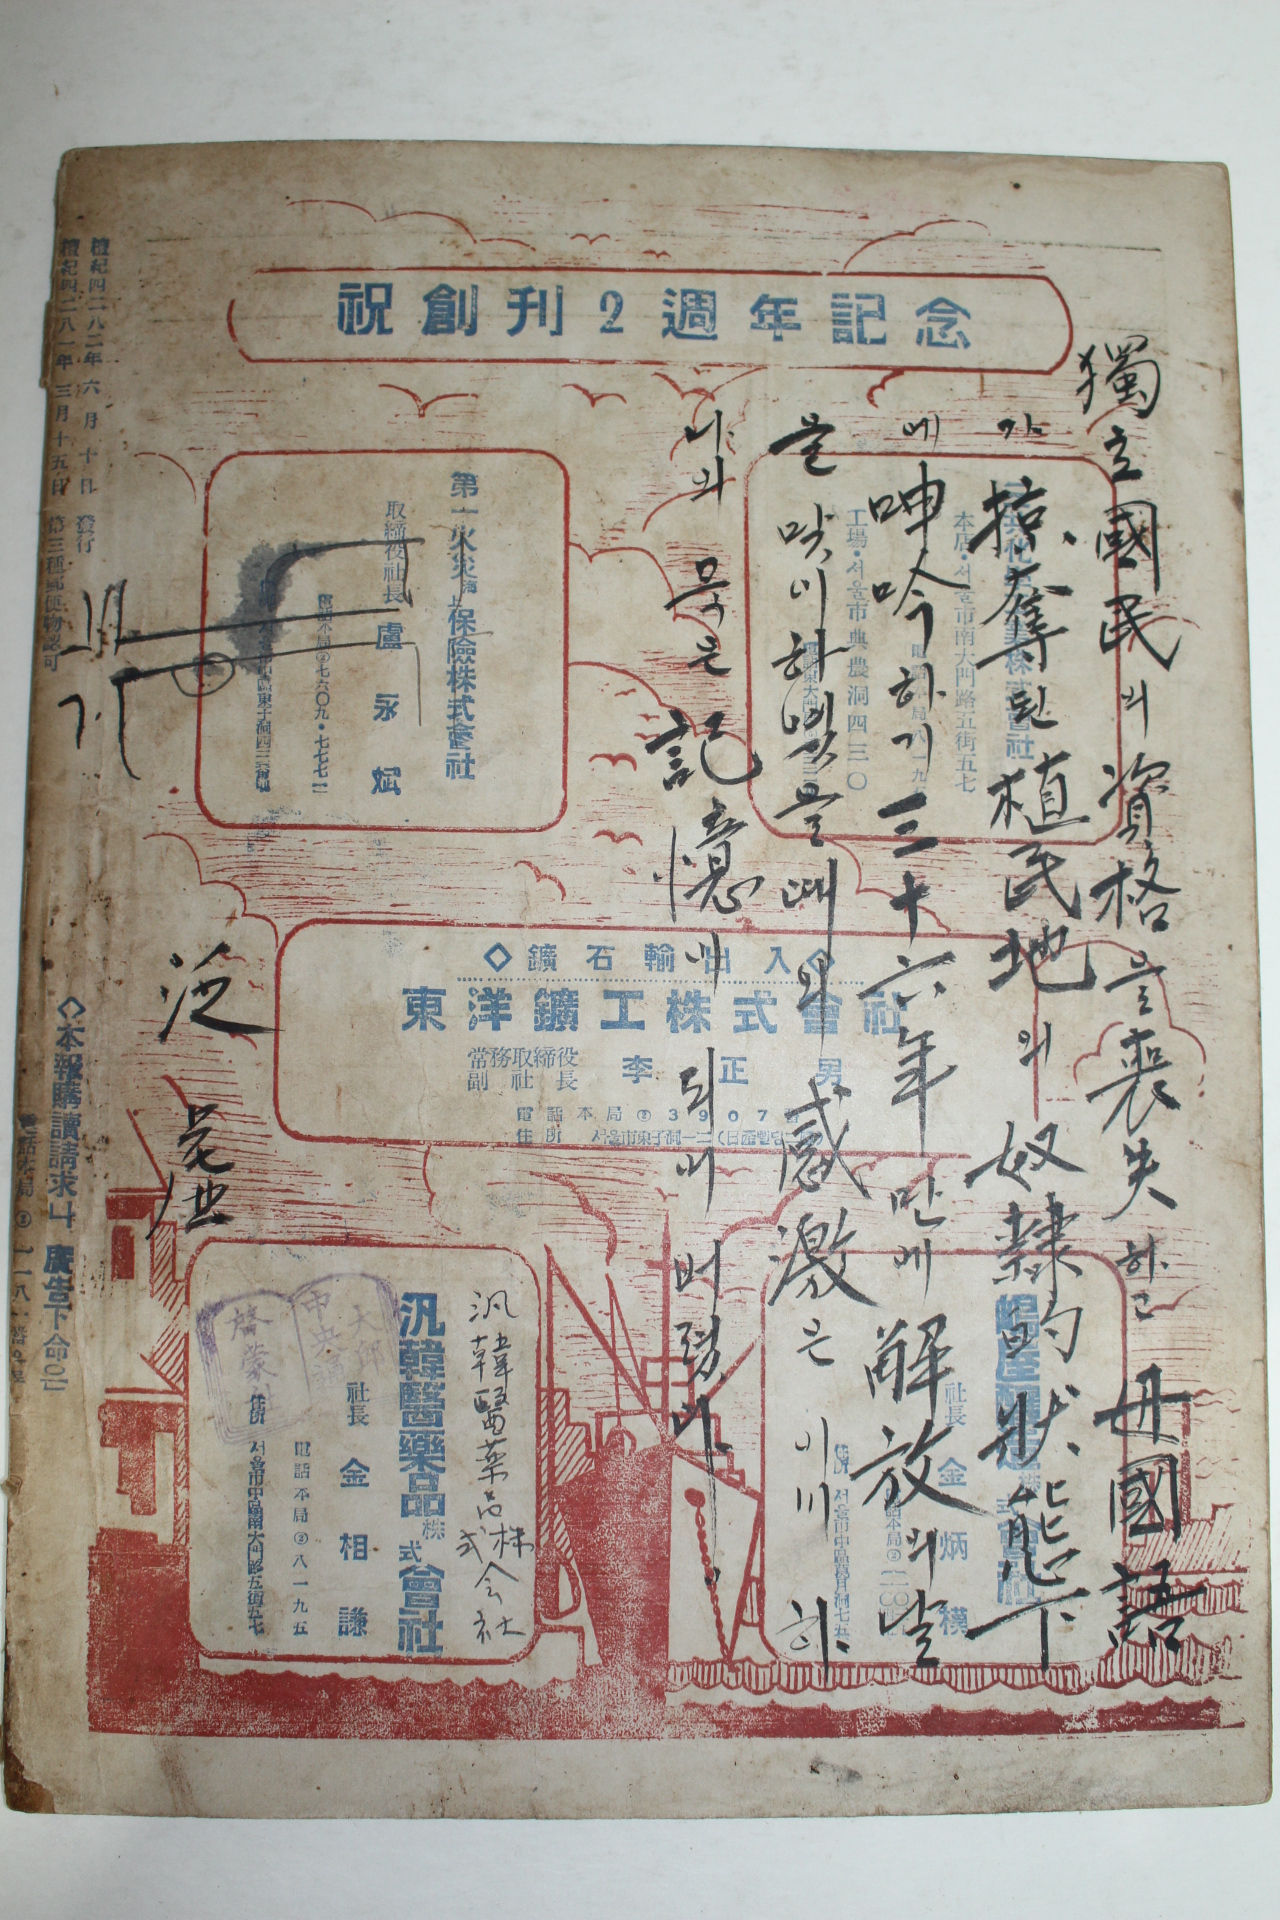 祝創刊2週年記念
獨立國民의資格을喪失하고 母國語
가掠奪된植民地의奴隸的狀態下
에呻吟하기三十六年만에解放의날
을맞이하였을때의感激은이미하
나의묵은記憶이되어버렸다.
本店·서울市南大門路五街五七
工場·서울市典農洞四三〇
第一火災海上保險株式會社
取締役社長 盧永斌
電話本局②七六〇九·七七七一
◇鑛石輸出入◇
東洋鑛工株式會社
常務取締役
副社長
李正男
電話本局②3907番
社長 金炳模
汎韓醫藥品株式會社
汎韓醫薬品株式会社
社長 金相謙
電話本局②八一九五
住所 서울市中區南大門路五街五七
檀紀四二八二年六月十日 發行
檀紀四二八一年三月十五日 第三種郵便物認可
◇本報購讀請求나 廣告下命은